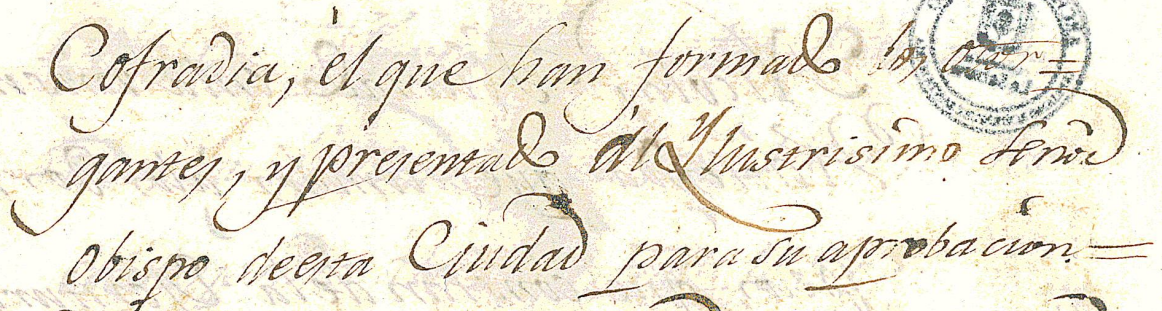 Cofradia, èl que han formado los otor=
gantes, y presentado àl Yllustrisimo Señor
Obispo deesta Ciudad para su aprobacion.=